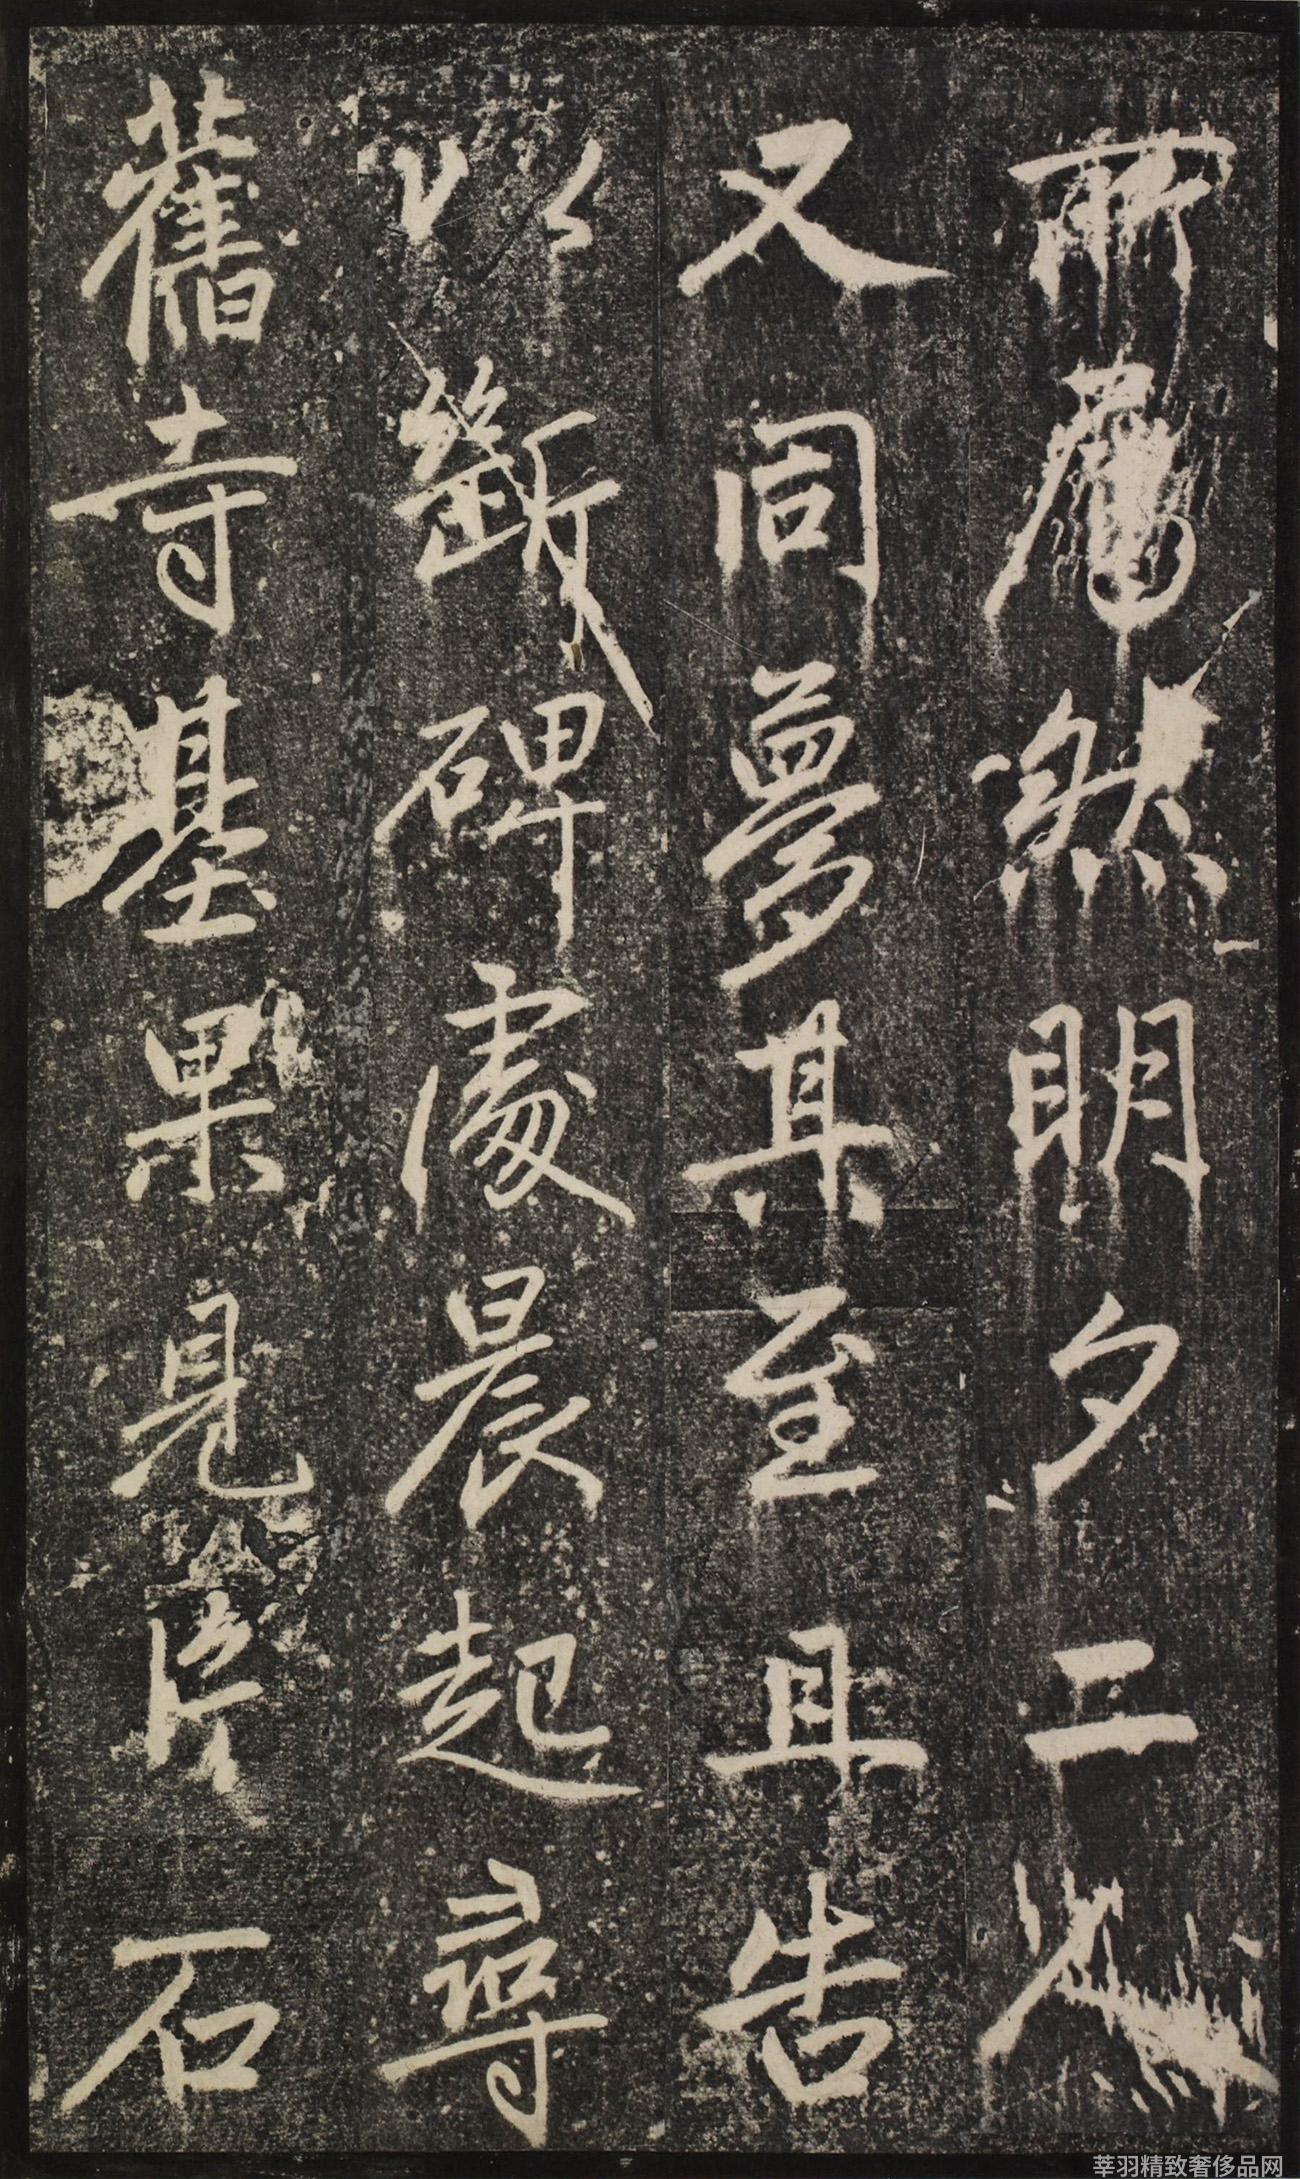 所然明夕二
又同夢其至且告
以斷碑處晨起尋
舊寺基果見片石
莘羽精致奢侈品网